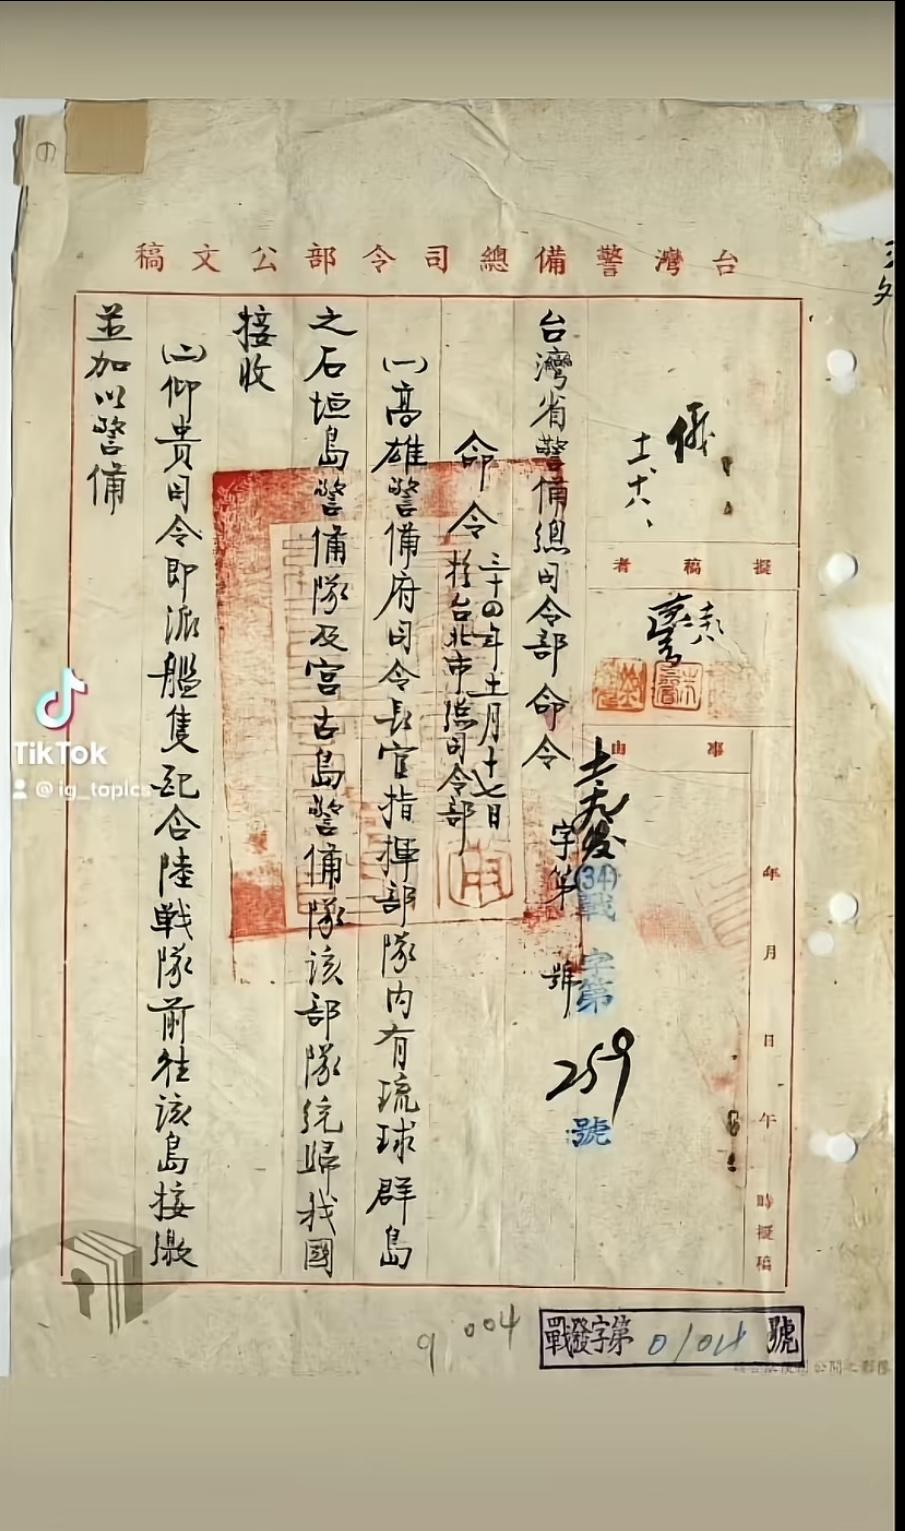 台灣警備總司令部公文稿
儀
擬稿者
事由
年月日午時擬稿
(34)戰字第
259
號
台灣省警備總司令部命令
字第 號
命令
三十四年十一月十七日
於台北市總司令部
(一)高雄警備府司令長官指揮部隊內有琉球群島
之石垣島警備隊及宮古島警備隊該部隊統歸我國
接收
(二)仰貴司令即派艦隻配合陸戰隊前往該島接繳
並加以警備
9 004
戰發字第0104號
TikTok
@ig_topics